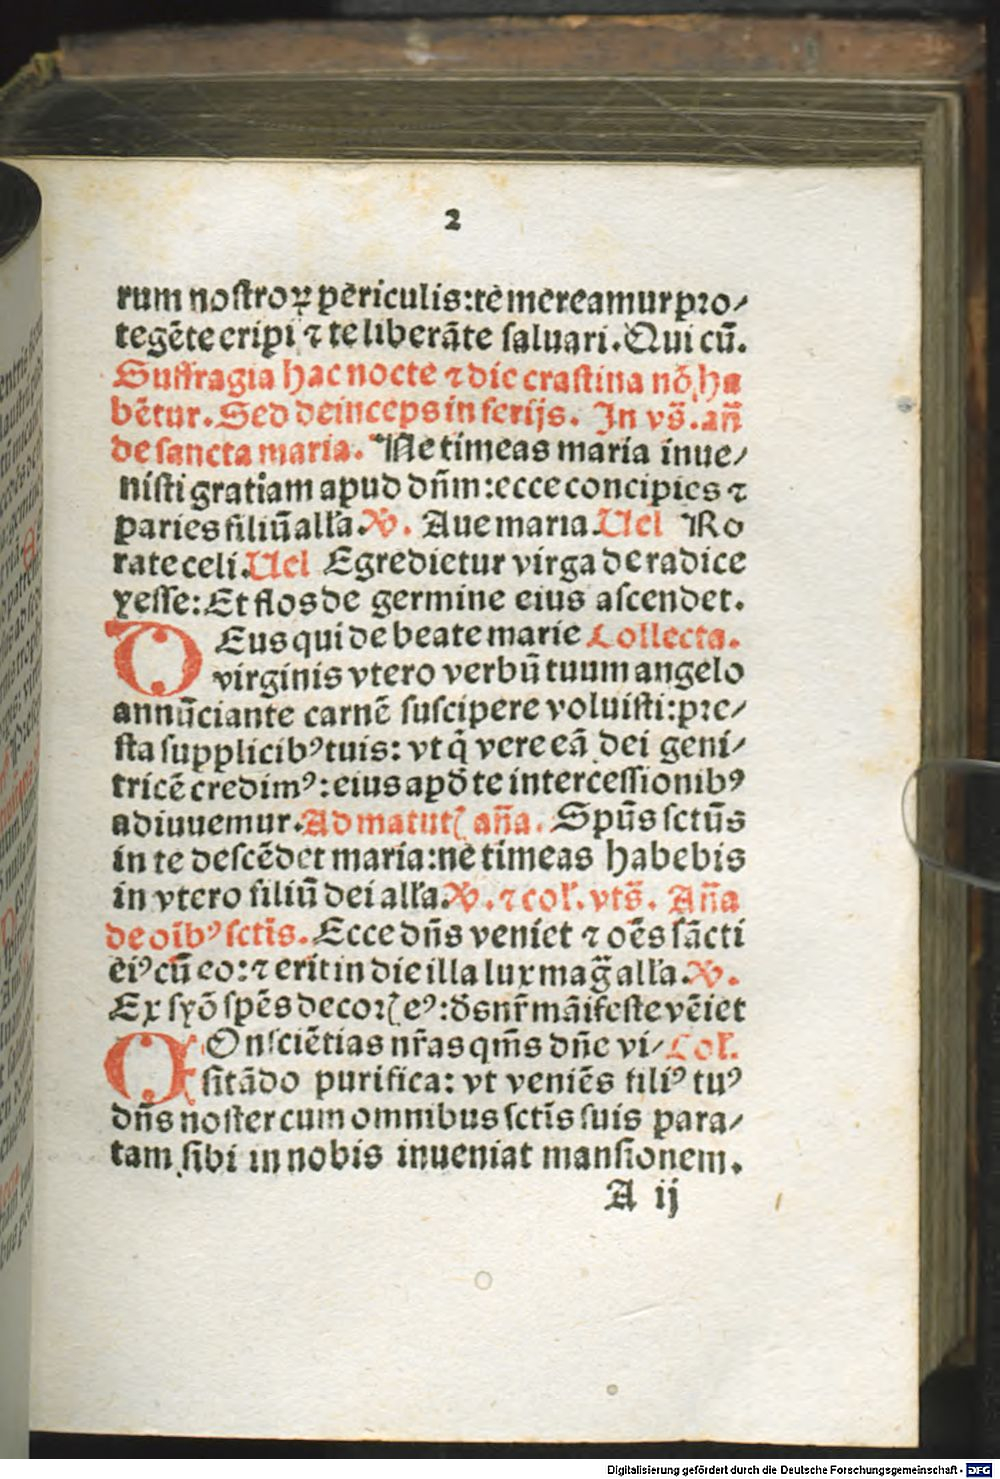 2
rum nostroꝝ periculis: te mereamur pro⸗
tegēte eripi ⁊ te liberāte saluari. Qui cū.
Suffragia hac nocte ⁊ die crastina nō ha
bētur. Sed deinceps in ferijs. In vs̄. an̄
de sancta maria. Ne timeas maria inue⸗
nisti gratiam apud dn̄m: ecce concipies ⁊
paries filiū alla. ℣. Aue maria. Uel Ro
rate celi. Uel Egredietur virga de radice
yesse: Et flos de germine eius ascendet.
DEus qui de beate marie Collecta.
virginis vtero verbū tuum angelo
annūciante carnē suscipere voluisti: pre⸗
sta supplicibꝰ tuis: vt q̄ vere eā dei geni⸗
tricē credimꝰ: eius apd̄ te intercessionibꝰ
adiuuemur. Ad matut̄ an̄a. Spūs sctūs
in te descēdet maria: ne timeas habebis
in vtero filiū dei alla. ℣. ⁊ col̄. vts̄. An̄a
de oībꝰ sctīs. Ecce dn̄s veniet ⁊ oēs sācti
eiꝰ cū eo: ⁊ erit in die illa lux maḡ alla. ℣.
Ex syō spēs decor̄ eꝰ: ds̄ nr̄ māifeste vēiet
COnsciētias nr̄as qm̄s dn̄e vi⸗ Col̄.
sitādo purifica: vt veniēs filiꝰ tuꝰ
dn̄s noster cum omnibus sctīs suis para⸗
tam sibi in nobis inueniat mansionem.
A ij
Digitalisierung gefördert durch die Deutsche Forschungsgemeinschaft - DFG